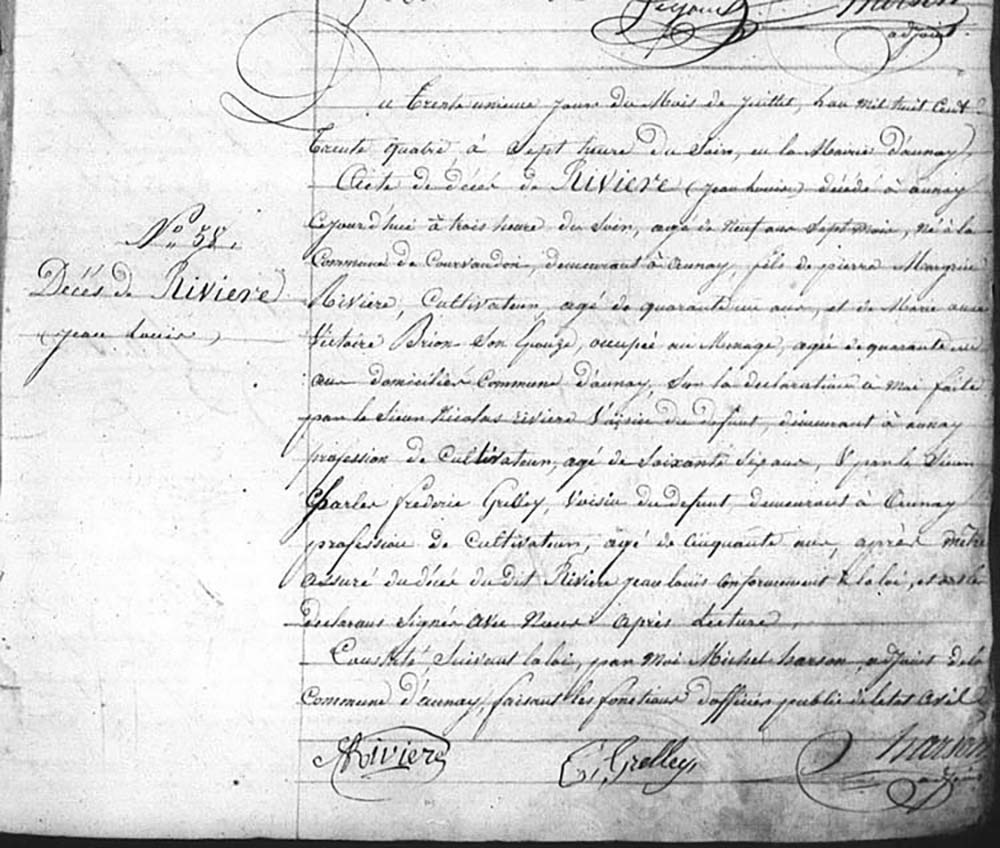 harson
adjoint
Du trente unieme jour du Mois de juillet, l'an mil huit Cent
Trente quatre, à Sept heure du Soir, en la Mairie d'aunay,
Acte de décés de Riviere (jean Louis) décédé à aunay
Cejourd'hui à trois heure du Soir, agé de Neuf ans Sept mois, Né à la
Commune de Courvaudon, demeurant à aunay, fils de pierre
Riviere, Cultivateur, agé de quarante un ans, et de Marie anne
Victoire Brion Son Epouze, occupée au Menage, agée de quarante
ans domiciliés Commune d'aunay, Sur la declaration à moi faite
par le Sieur Nicolas riviere Voisin du defunt, demeurant à aunay
profession de Cultivateur, agé de Soixante Sept ans, & par le Sieur
Charles frederic Grelley, Voisin du defunt, demeurant à Aunay
profession de Cultivateur, agé de Cinquante ans, après m'etre
assuré du décés du dit Riviere jean louis Conformement à la loi, et ont les
declarans Signés avec Nous après Lecture,
Constaté Suivant la loi, par moi Michel harson, adjoint de la
Commune d'aunay, faisant les fonctions d'officier public de l'etat Civil
No 58.
Décés de Riviere
(jean Louis)
Riviere
Grelley
harson
adjoint